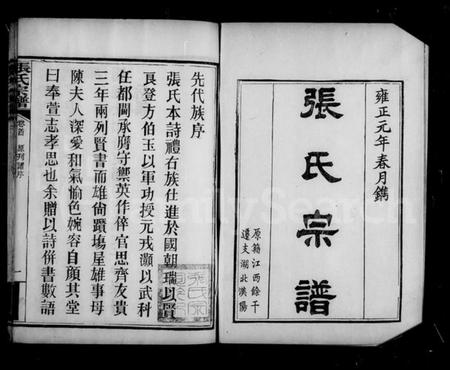 雍正元年春月鐫
張氏宗譜
原籍江西餘干
遷支湖北漢陽
先代族序
張氏本詩禮右族仕進於國朝瑞以賢
良登方伯玉以軍功授元戎灝以武科
任都閫承廕守禦英作倅官思齊友貴
三年兩列賢書而雄尙躓塲屋雄事母
陳夫人深愛和氣愉色婉容自顏其堂
曰奉萱志孝思也余贈以詩倂書數語
張氏宗譜
卷首
原列譜序
一
FamilySearch